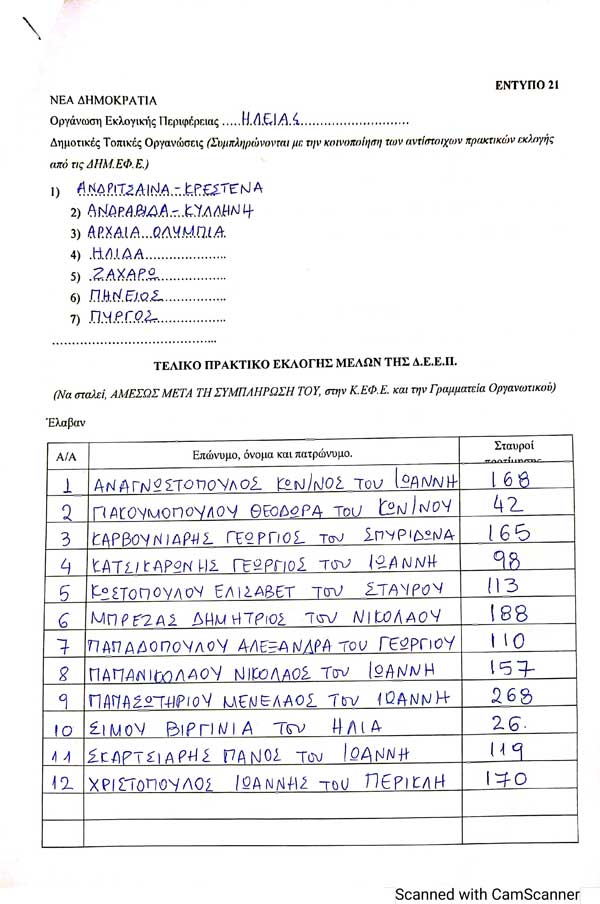 ΕΝΤΥΠΟ 21
ΝΕΑ ΔΗΜΟΚΡΑΤΙΑ
Οργάνωση Εκλογικής Περιφέρειας .....ΗΛΕΙΑΣ............................
Δημοτικές Τοπικές Οργανώσεις (Συμπληρώνονται με την κοινοποίηση των αντίστοιχων πρακτικών εκλογής
από τις ΔΗΜ.ΕΦ.Ε.)
1) ΑΝΔΡΙΤΣΑΙΝΑ - ΚΡΕΣΤΕΝΑ
2) ΑΝΔΡΑΒΙΔΑ - ΚΥΛΛΗΝΗ
3) ΑΡΧΑΙΑ ΟΛΥΜΠΙΑ
4) ΗΛΙΔΑ
5) ΖΑΧΑΡΩ
6) ΠΗΝΕΙΟΣ
7) ΠΥΡΓΟΣ
ΤΕΛΙΚΟ ΠΡΑΚΤΙΚΟ ΕΚΛΟΓΗΣ ΜΕΛΩΝ ΤΗΣ Δ.Ε.Ε.Π.
(Να σταλεί, ΑΜΕΣΩΣ ΜΕΤΑ ΤΗ ΣΥΜΠΛΗΡΩΣΗ ΤΟΥ, στην Κ.ΕΦ.Ε. και την Γραμματεία Οργανωτικού)
Έλαβαν
Α/Α Επώνυμο, όνομα και πατρώνυμο. Σταυροί προτίμησης
1 ΑΝΑΓΝΩΣΤΟΠΟΥΛΟΣ ΚΩΝ/ΝΟΣ του ΙΩΑΝΝΗ 168
2 ΓΙΑΚΟΥΜΟΠΟΥΛΟΥ ΘΕΟΔΩΡΑ του ΚΩΝ/ΝΟΥ 42
3 ΚΑΡΒΟΥΝΙΑΡΗΣ ΓΕΩΡΓΙΟΣ του ΣΠΥΡΙΔΩΝΑ 165
4 ΚΑΤΣΙΚΑΡΩΝΗΣ ΓΕΩΡΓΙΟΣ του ΙΩΑΝΝΗ 98
5 ΚΩΣΤΟΠΟΥΛΟΥ ΕΛΙΣΑΒΕΤ του ΣΤΑΥΡΟΥ 113
6 ΜΠΡΕΖΑΣ ΔΗΜΗΤΡΙΟΣ του ΝΙΚΟΛΑΟΥ 188
7 ΠΑΠΑΔΟΠΟΥΛΟΥ ΑΛΕΞΑΝΔΡΑ του ΓΕΩΡΓΙΟΥ 110
8 ΠΑΠΑΝΙΚΟΛΑΟΥ ΝΙΚΟΛΑΟΣ του ΙΩΑΝΝΗ 157
9 ΠΑΠΑΣΩΤΗΡΙΟΥ ΜΕΝΕΛΑΟΣ του ΙΩΑΝΝΗ 268
10 ΣΙΜΟΥ ΒΙΡΓΙΝΙΑ του ΗΛΙΑ 26.
11 ΣΚΑΡΤΣΙΑΡΗΣ ΠΑΝΟΣ του ΙΩΑΝΝΗ 119
12 ΧΡΙΣΤΟΠΟΥΛΟΣ ΙΩΑΝΝΗΣ του ΠΕΡΙΚΛΗ 170
Scanned with CamScanner